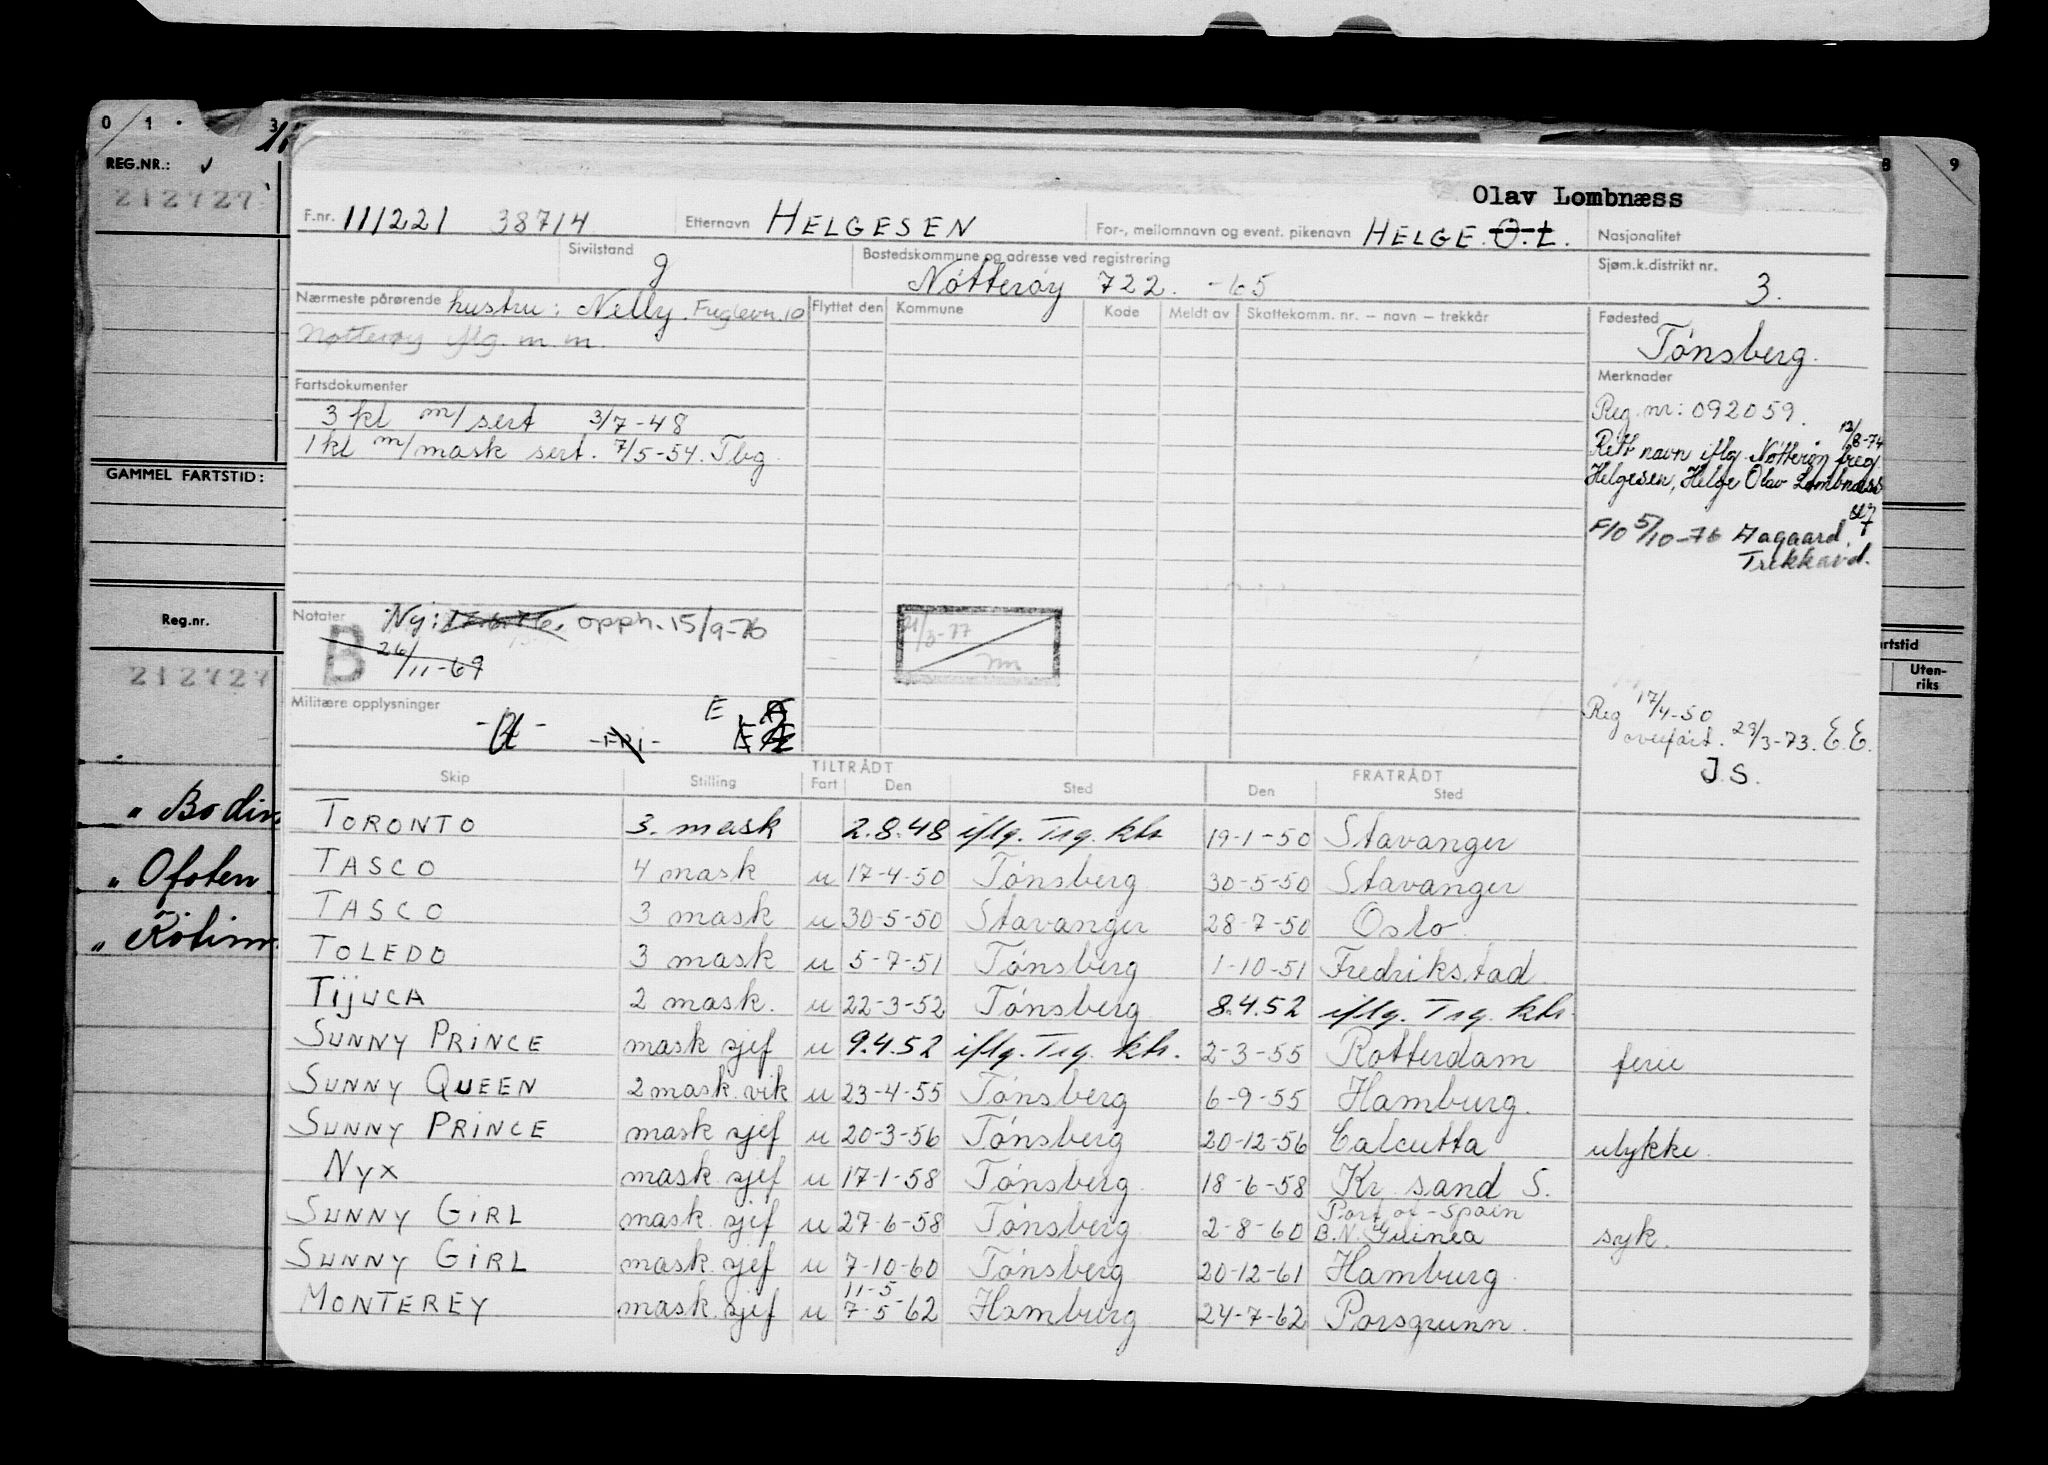 0 1 3
8 9
REG.NR.:
212727
GAMMEL FARTSTID:
Reg.nr.
212727
" Bodin
" Ofoten
"
rtstid
Uten-
riks
Olav Lombnæss
F.nr. 111221 38714 Etternavn HELGESEN For-, mellomnavn og event. pikenavn HELGE O.L. Nasjonalitet
Sivilstand g Bostedskommune og adresse ved registrering Nøtterøy 722. -65 Sjøm.k.distrikt nr. 3.
Nærmeste pårørende hustru: Nelly. Fuglevn. 10 Flyttet den Kommune Kode Meldt av Skattekomm. nr. – navn – trekkår Fødested
Nøtterøy iflg. m.m. Tønsberg.
Fartsdokumenter Merknader
3 kl m/sert 3/7-48 Reg. nr: 092059.
1 kl m/mask sert. 7/5-54. Tbg. 12/8-74
Rett navn iflg. Nøtterøy freg.
Helgesen, Helge Olav Lombnæss
F10 5/10-76 Aagaard.
Trekkavd.
Notater Ny: opph. 15/9-76
B 26/11-69
21/3-77
Militære opplysninger -FRI- E
Reg 17/4-50
overført. 29/3-73. E.E.
J.S.
TILTRÅDT FRATRÅDT
Skip Stilling Fart Den Sted Den Sted
TORONTO 3. mask 2.8.48 iflg. Trg. ktr 19-1-50 Stavanger
TASCO 4 mask u 17-4-50 Tønsberg 30-5-50 Stavanger
TASCO 3 mask u 30-5-50 Stavanger 28-7-50 Oslo
TOLEDO 3 mask u 5-7-51 Tønsberg 1-10-51 Fredrikstad
TIJUCA 2 mask. u 22-3-52 Tønsberg 8.4.52 iflg. Trg. ktr.
SUNNY PRINCE mask sjef u 9.4.52 iflg. Trg. ktr. 2-3-55 Rotterdam ferie
SUNNY QUEEN 2 mask. vik u 23-4-55 Tønsberg 6-9-55 Hamburg.
SUNNY PRINCE mask sjef u 20-3-56 Tønsberg 20-12-56 Calcutta ulykke.
NYX mask sjef u 17-1-58 Tønsberg 18-6-58 Kr. sand S.
SUNNY GIRL mask sjef u 27-6-58 Tønsberg 2-8-60 Port of-Spain B.N. Guinea syk.
SUNNY GIRL mask sjef u 7-10-60 Tønsberg 20-12-61 Hamburg
11-5
MONTEREY mask. sjef u 7-5-62 Hamburg 24-7-62 Porsgrunn.